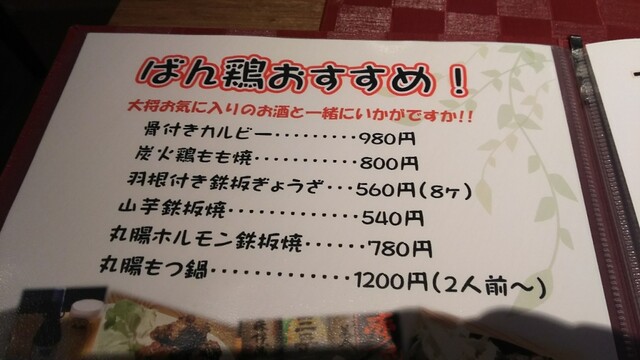 ばん鶏おすすめ！
大将お気に入りのお酒と一緒にいかがですか!!
骨付きカルビー・・・・・・・・・980円
炭火鶏もも焼・・・・・・・・・・・800円
羽根付き鉄板ぎょうざ・・・560円(8ヶ)
山芋鉄板焼・・・・・・・・・・・・・540円
丸腸ホルモン鉄板焼・・・・・・780円
丸腸もつ鍋・・・・・・・・・・・・・1200円(2人前〜)